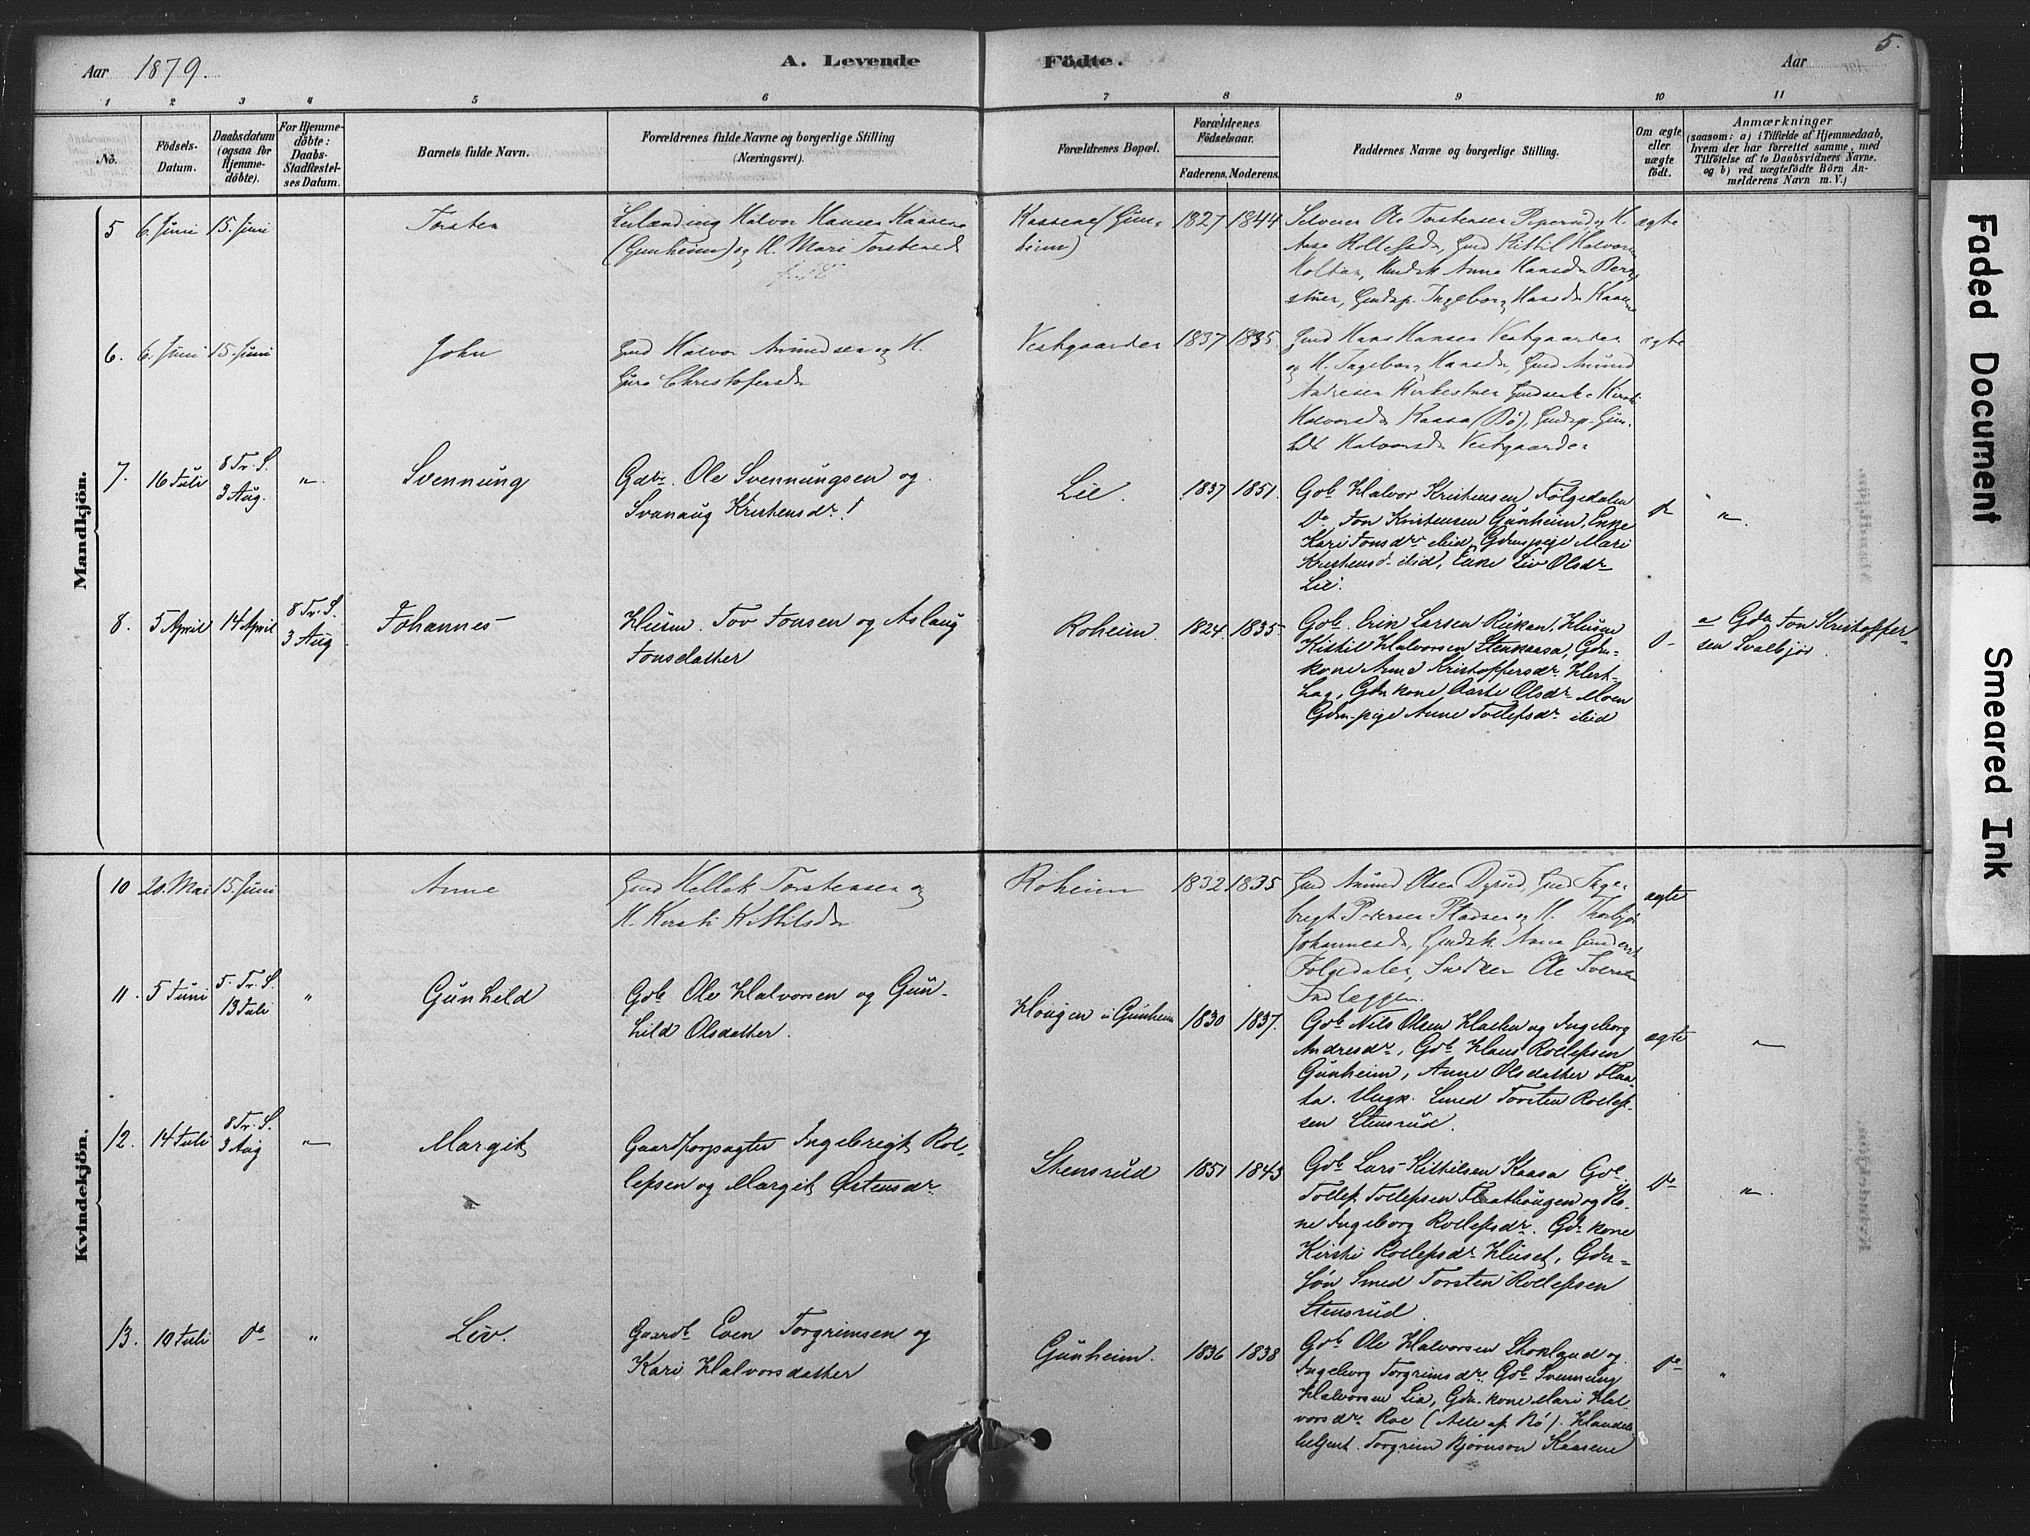 Aar 1879.
A. Levende Födte.
Aar
5.
1 2 3 4 5 6 7 8 9 10 11
No.
Födsels-Datum.
Daabsdatum (ogsaa for Hjemme-döbte).
For Hjemme-döbte: Daabs-Stadfæstel-ses Datum.
Barnets fulde Navn.
Forældrenes fulde Navne og borgerlige Stilling (Næringsvei).
Forældrenes Bopæl.
Forældrenes Födselsaar.
Faderens. Moderens.
Faddernes Navne og borgerlige Stilling.
Om ægte eller uægte födt.
Anmærkninger
(saasom: a) i Tilfælde af Hjemmedaab,
hvem der har forrettet samme, med
Tilföielse af to Daabsvidners Navne.
og b) ved uægtefödte Börn An-
melderens Navn m. V.)
Mandkjön.
5 6. Juni 15. Juni
Torsten
Halvor Hansen Kaasene
(Gunheim) og H. Mari Torstensd
Kaasene (Gun-
heim)
1827 1844
Selveier Ole Torstensen og H.
Aase Rollefsd, Gmd Kittil Halvors
Holtan, Anne Hansd Berg
stuen, Gmdsp. Ingeborg Hansd Kaasene
ægte
6. 6. Juni 15. Juni
John
Gmd Halvor Amundsen og H.
Guro Christofersd
Vestgaarden
1837 1835.
Gmd Hans Hansen Vestgaarden
og H. Ingeborg Hansd, Gmd Amund
Andresen Kirkestuen
Halvorsd Kaasa (Bø), Gmdsp. Gun-
hild Halvorsd Vestgaarden
ægte
7. 16 Juli
8 Tr. S.
3 Aug.
"
Svennung
Gdbr. Ole Svennungsen og
Svanaug Kristensdr.
Lie.
1837 1851.
Gdb Halvor Kristensen Følgedalen
Do Jon Kristensen Gunheim, Enke
Kari Jonsdr ibid, Gdmspige Mari
Kristensd ibid, Enke Liv Olsdr
Lie.
Do
"
8. 5 April 14 April
8 Tr. S.
3 Aug
Johannes
Husm. Tov Jonsen og Aslaug
Jonsdatter
Roheim.
1824 1835.
Gdb. Erik Larsen Rukan, Husm
Kittil Halvorsen Stenkaasa, Gdm-
kone Anne Kristoffersdr.
Gdm kone Aaste Olsdr Moen
Gdm-pige Anne Tollefsdr ibid
a Gdm Jon Kristoffer-
sen Svalbjør.
Kvindekjön.
10 20. Mai 15. Juni
Anne
Gmd Hellek Torstensen og
H. Kirsti Kittilsd
Roheim
1832 1835
Gmd Amund Olsen Dyrud, Gmd Inge-
bregt Pedersen Pladsen og H. Thorbjør
Johannesd, Anne Gunders
Folgedalen, Snidker Ole Iversen
Indleggen.
ægte
11. 5 Juni
5. Tr. S.
13 Juli
"
Gunhild
Gdb Ole Halvorsen og Gun-
hild Olsdatter.
Hougen i Gunheim
1830 1837.
Gdb Nils Olsen Haslen og Ingeborg
Andresdr, Gdb Hans Rollefsen
Gunheim, Anne Olsdatter Flaa-
ta. Ungk. Smed Torsten Rollef-
sen Stensrud.
ægte
"
12. 14 Juli
8 Tr. S.
3 Aug
"
Margit
Gaardforpagter Ingebregt Rol-
lefsen og Margit Østensdr.
Stensrud
1851 1843
Gdb Lars Kittilsen Kaasa Gdb.
Tollef Tollefsen Flaathougen og Ko-
ne Ingeborg Rollefsdr. Gdm kone
Kirsti Rollefsdr Huset, Gdm-
søn Smed Torsten Rollefsen
Stensrud.
Do
"
13. 10 Juli Do "
Liv.
Gaardb Even Torgrimsen og
Kari Halvorsdatter
Gunheim.
1836 1838
Gdb Ole Halvorsen Skovland og
Ingeborg Torgrimsdr. Gdb Svennung
Halvorsen Lia, Gdm. kone Mari Hal-
vorsdr Roe (Alle af Bø). Handels-
betjent Torgrim Bjørnson Kaasene
Do
"
Faded Document
Smeared Ink